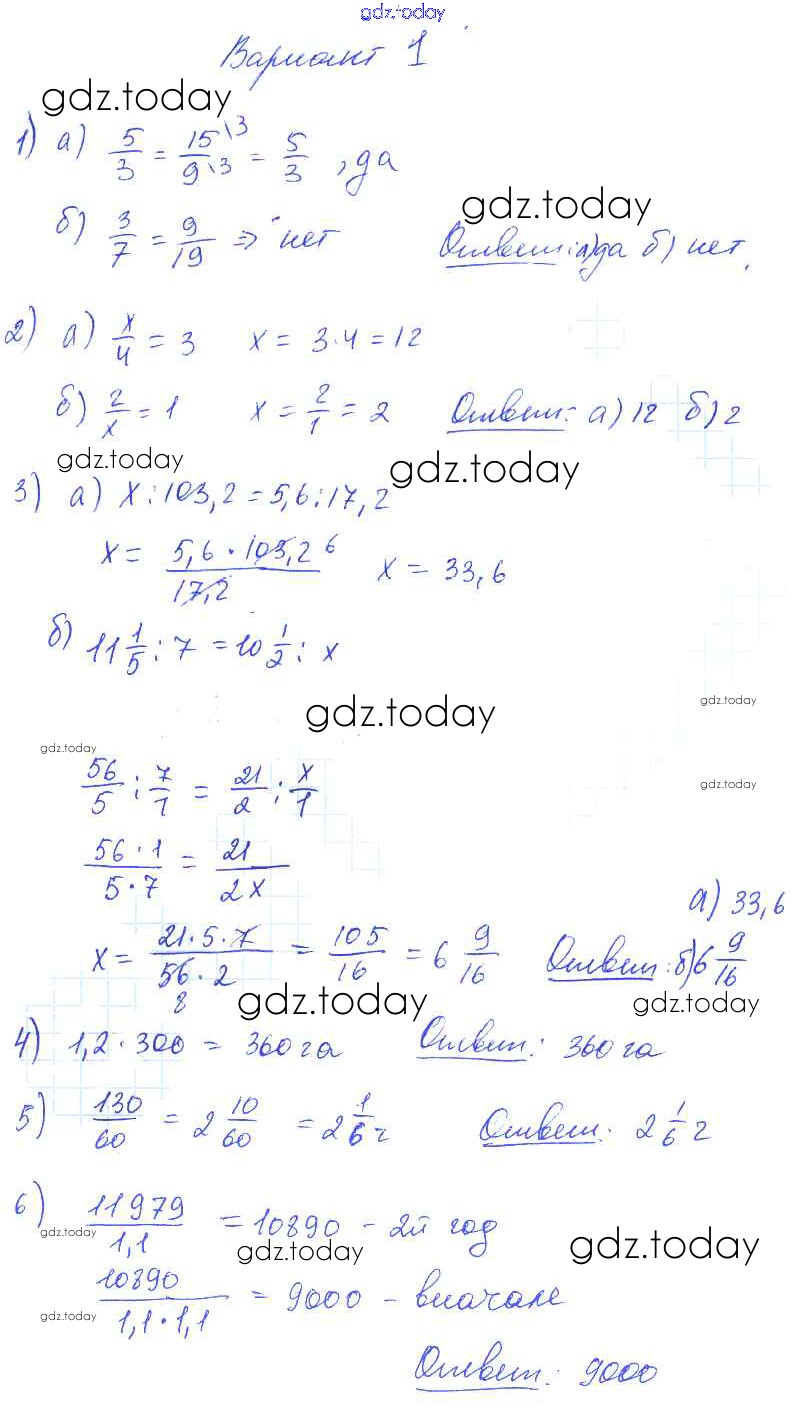 gdz.today
Вариант 1
gdz.today
1) а) 5/3 = 15\3/9\3 = 5/3, да
gdz.today
б) 3/7 = 9/19 => нет Ответ: а) да б) нет.
2) а) x/4 = 3 x = 3·4 = 12
б) 2/x = 1 x = 2/1 = 2 Ответ: а) 12 б) 2
gdz.today gdz.today
3) а) x : 103,2 = 5,6 : 17,2
x = 5,6 · 103,2 6/17,2 x = 33,6
б) 11 1/5 : 7 = 10 1/2 : x
gdz.today
gdz.today
gdz.today
56/5 : 7/1 = 21/2 : x/1
gdz.today
56 · 1/5 · 7 = 21/2x
а) 33,6
x = 21·5·7/56·2 8 = 105/16 = 6 9/16 Ответ: б) 6 9/16
gdz.today gdz.today
4) 1,2 · 300 = 360 га Ответ: 360 га
5) 130/60 = 2 10/60 = 2 1/6 ч Ответ: 2 1/6 ч
6) 11979/1,1 = 10890 - 2й год
gdz.today gdz.today gdz.today
10890/1,1·1,1 = 9000 - вначале
gdz.today
Ответ: 9000